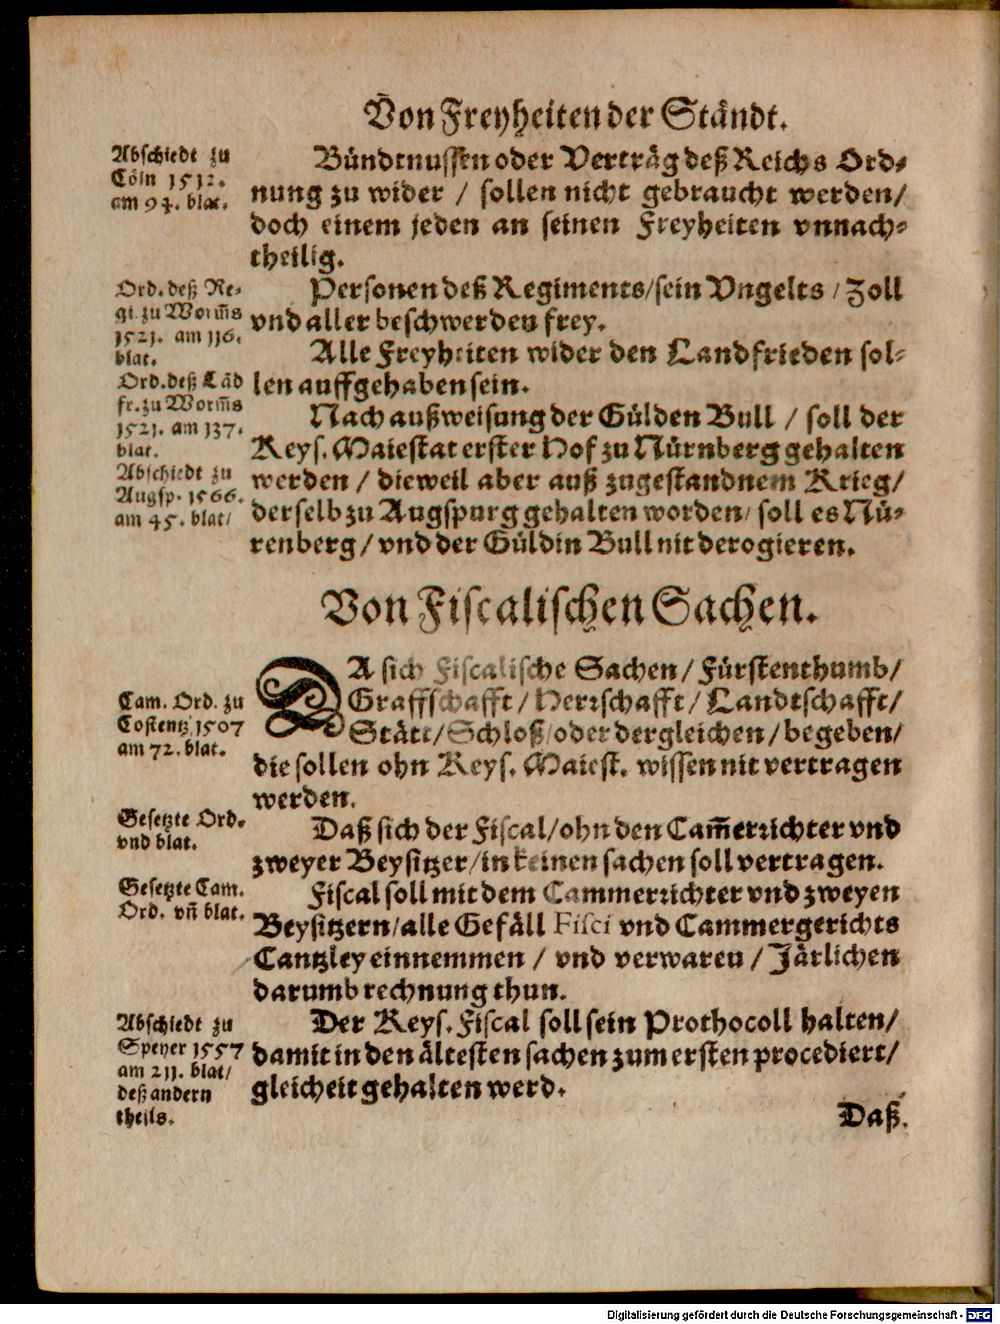 Von Freyheiten der Ständt.
Abschiedt zu
Cöln 1512.
am 94. blat.
Bündtnussen oder Verträg deß Reichs Ord-
nung zu wider / sollen nicht gebraucht werden/
doch einem jeden an seinen Freyheiten vnnach-
theilig.
Ord. deß Re-
gi. zu Worm̃s
1521. am 116.
blat.
Personen deß Regiments/sein Vngelts / Zoll
vnd aller beschwerden frey.
Alle Freyheiten wider den Landfrieden sol-
len auffgehaben sein.
Ord. deß Lãd
fr. zu Worm̃s
1521. am 137.
blat.
Abschiedt zu
Augsp. 1566.
am 45. blat/
Nach außweisung der Gülden Bull / soll der
Keys. Maiestat erster Hof zu Nürnberg gehalten
werden / dieweil aber auß zugestandnem Krieg/
derselb zu Augspurg gehalten worden/ soll es Nü-
renberg / vnd der Güldin Bull nit derogieren.
Von Fiscalischen Sachen.
Cam. Ord. zu
Costentz 1507
am 72. blat.
DA sich Fiscalische Sachen / Fürstenthumb/
Graffschafft / Herrschafft / Landtschafft/
Stätt/ Schloß/ oder dergleichen / begeben/
die sollen ohn Keys. Maiest. wissen nit vertragen
werden.
Gesetzte Ord.
vnd blat.
Daß sich der Fiscal/ohn den Cam̃errichter vnd
zweyer Beysitzer/in keinen sachen soll vertragen.
Gesetzte Cam.
Ord. vñ blat.
Fiscal soll mit dem Cammerrichter vnd zweyen
Beysitzern/alle Gefäll Fisci vnd Cammergerichts
Cantzley einnemmen / vnd verwaren / Järlichen
darumb rechnung thun.
Abschiedt zu
Speyer 1557
am 211. blat/
deß andern
theils.
Der Keys. Fiscal soll sein Prothocoll halten/
damit in den ältesten sachen zum ersten procediert/
gleicheit gehalten werd.
Daß.
Digitalisierung gefördert durch die Deutsche Forschungsgemeinschaft - DFG